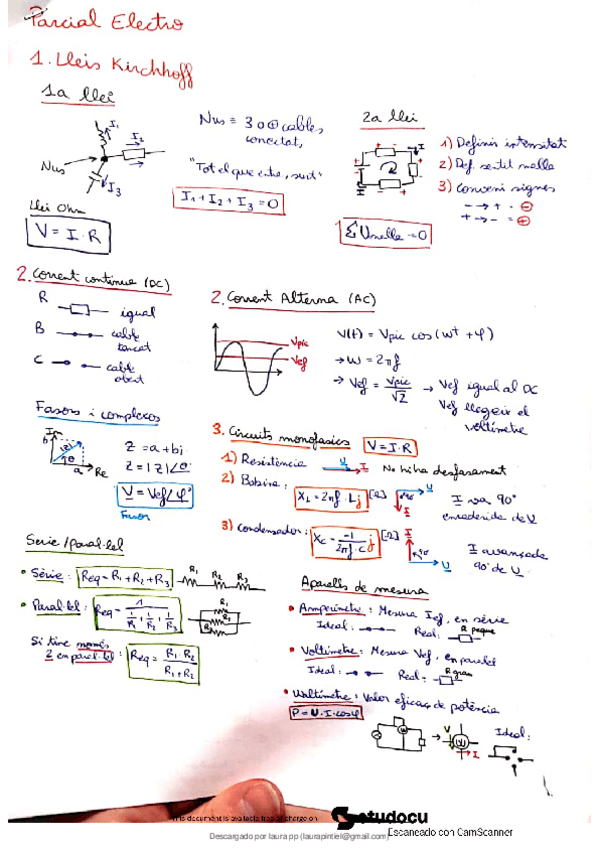 Parcial Electro
1. Lleis Kirchhoff
1a llei
I1
I2
I3
Nus
Nus = 3 o ⊕ cables
conectats
"Tot el que entra, surt"
I1 + I2 + I3 = 0
Llei Ohm
V = I · R
2a llei
I
1) Definir intensitat
2) Def. sentit malla
3) Conveni signes
- → + = ⊖
+ → - = ⊕
Σ Umalla = 0
2. Corrent continua (DC)
R igual
B cable
tancat
C cable
obert
2. Corrent Alterna (AC)
Vpic
Vef
V(t) = Vpic cos (wt + φ)
→ w = 2πf
→ Vef = Vpic/√2 → Vef igual al DC
Vef llegeix el
voltímetre
Fasors i complexos
Im
b
|z|
θ
a
Re
Z = a + bi
Z = |Z|∠θ
V = Vef∠φ°
Fasor
3. Circuits monofasics
V = I · R
1) Resistència
U
I
No hi ha desfasament
2) Bobina:
XL = 2πf · L j [Ω]
90°
U
I
I va 90°
enraderida de U
3) Condensador:
Xc = -1/2πf·C j [Ω]
I
90°
U
I avançada
90° de U
Serie/Paral·lel
• Sèrie: Req = R1 + R2 + R3
R1 R2 R3
• Paral·lel: Req = 1/(1/R1 + 1/R2 + 1/R3)
R1
R2
R3
Si tine només
2 en paral·lel: Req = R1 · R2/R1 + R2
Aparells de mesura
• Amperímetre: Mesura Ief, en sèrie
Ideal: Real: R peque
• Voltímetre: Mesura Vef, en paralel
Ideal: Real: R gran
• Watímetre: Valor eficaç de potència
P = U · I · cosφ
W
V
W
I
Ideal:
This document is available free of charge on
studocu
Descargado por laura pp (laurapintiel@gmail.com)
Escaneado con CamScanner